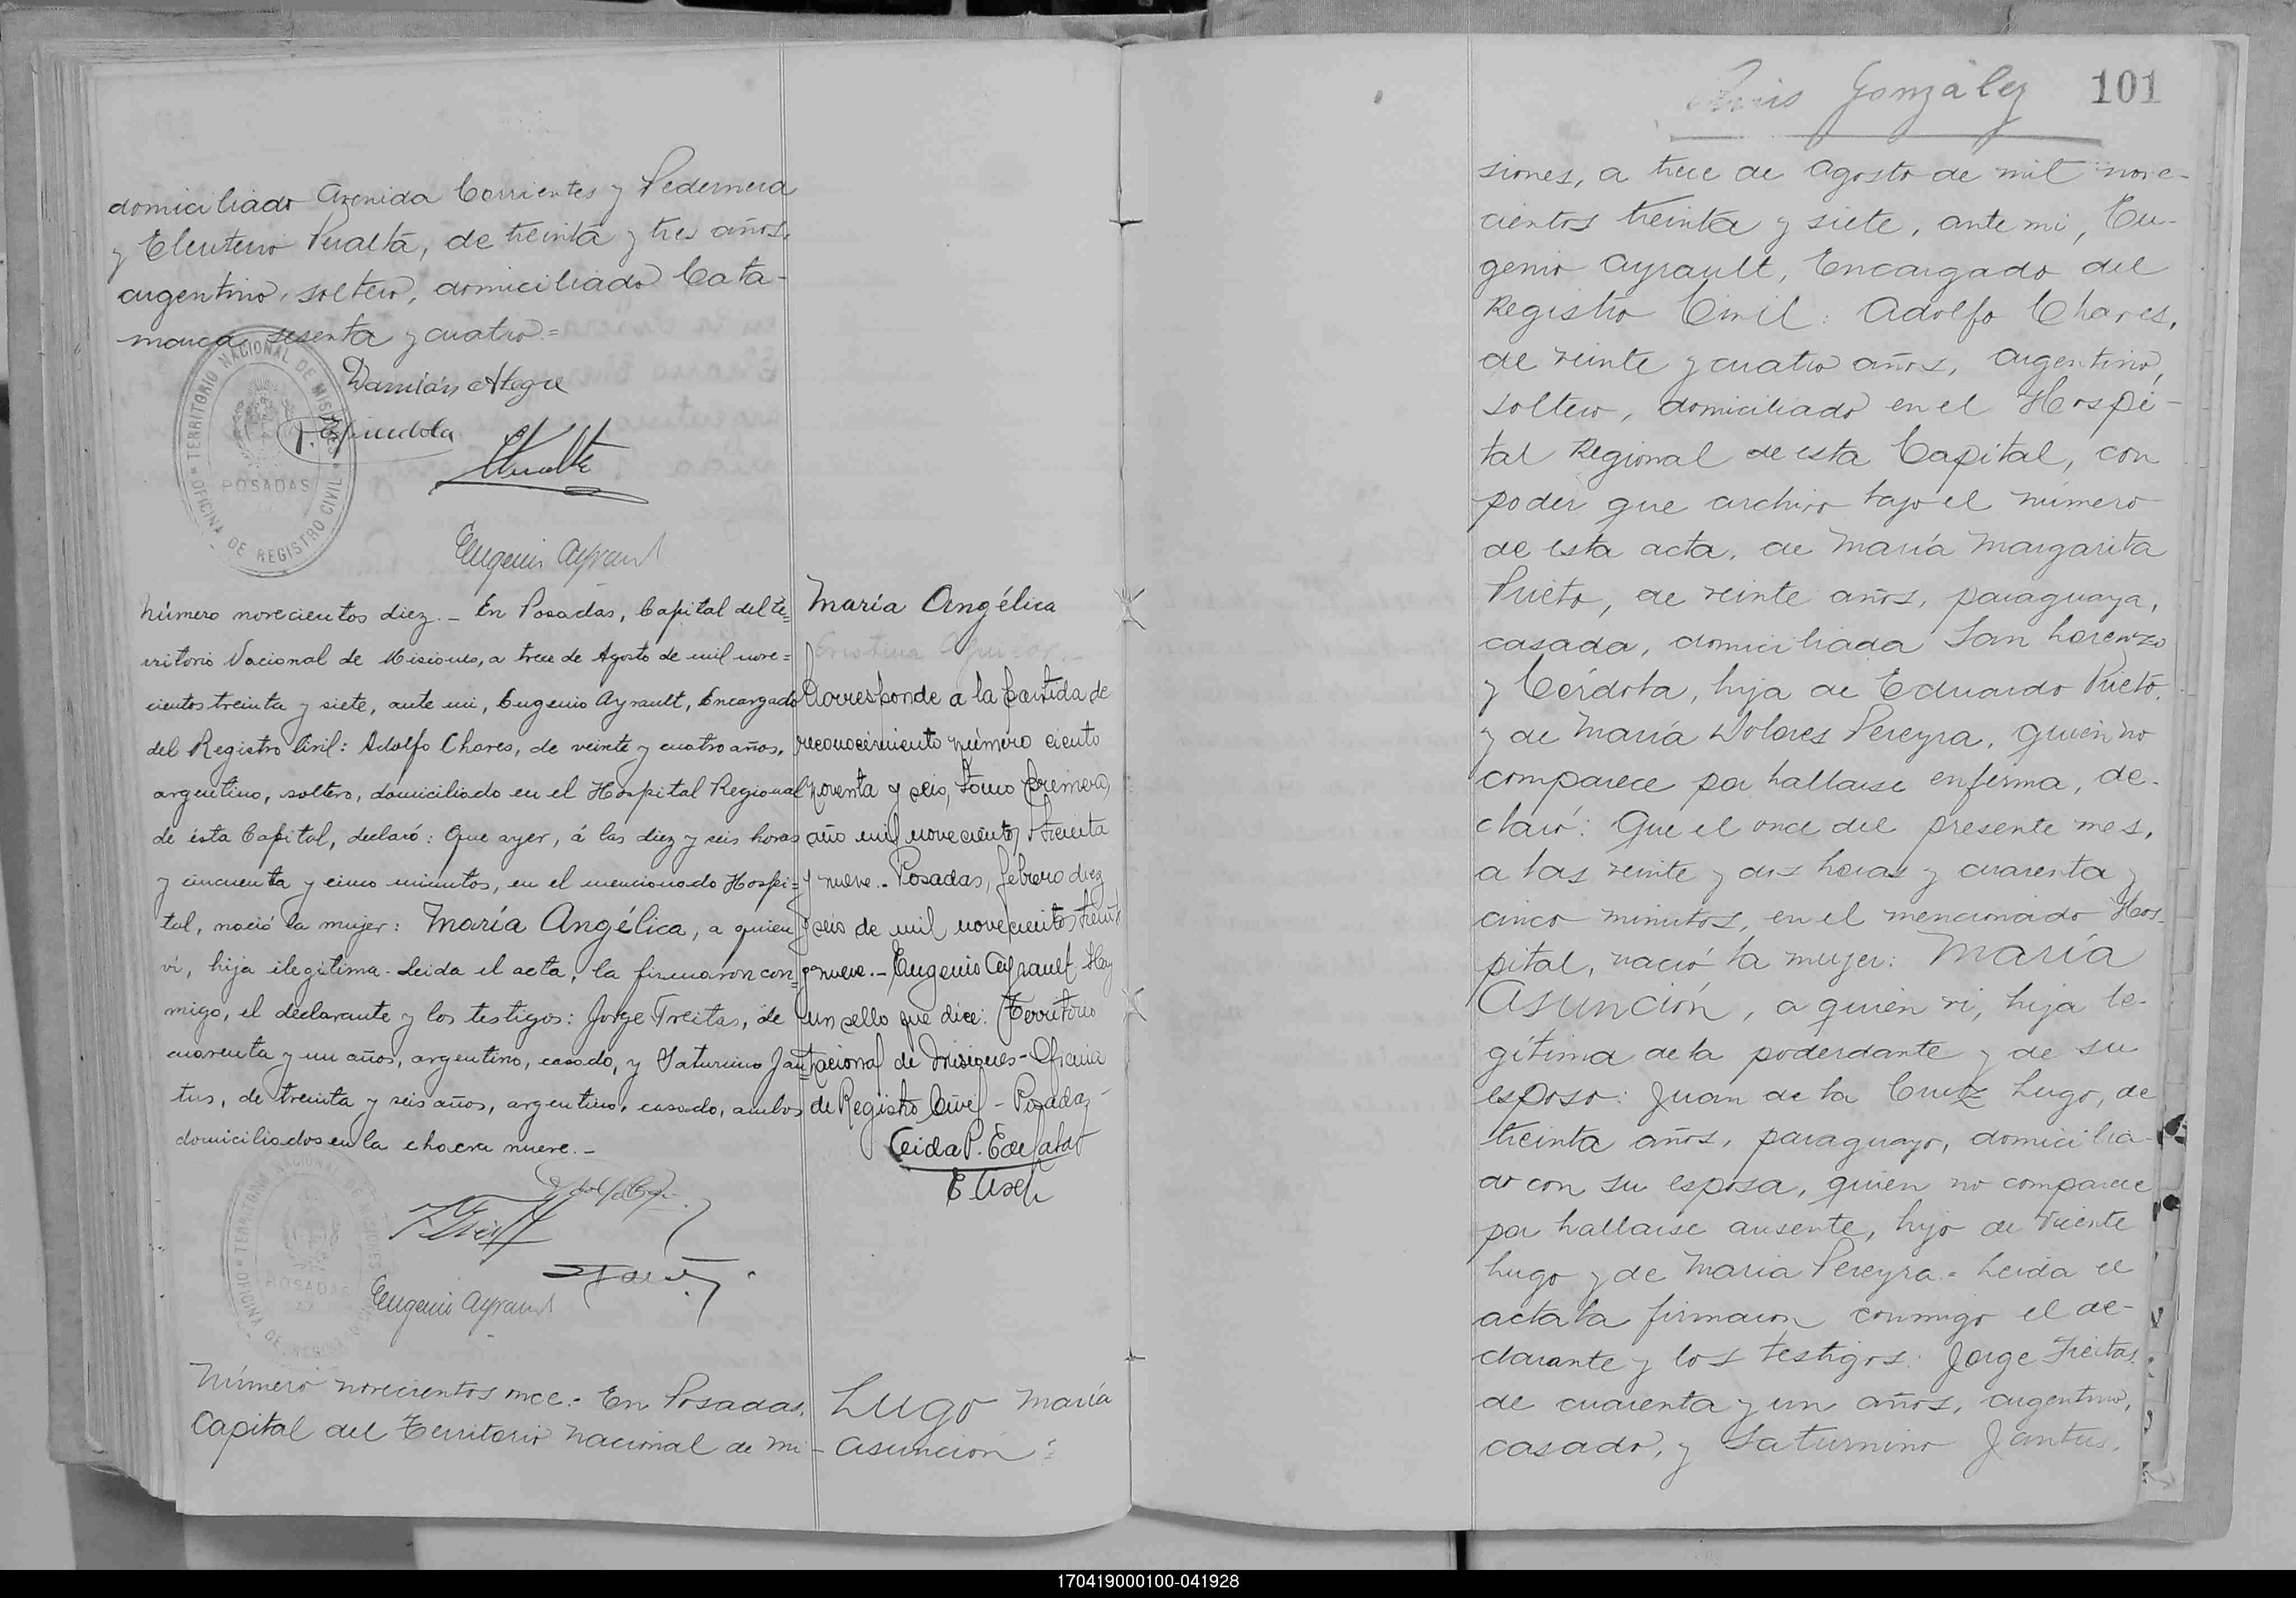 domiciliado Avenida Corrientes y Pedernera
y Eleuterio Peralta, de treinta y tres años,
argentino, soltero, domiciliado Cata-
marca sesenta y cuatro.=
Damián Alegre
Espindola
TERRITORIO NACIONAL DE MISIONES
POSADAS
OFICINA DE REGISTRO CIVIL
Eugenio Ayrault
Número novecientos diez.- En Posadas, Capital del te=
rritorio Nacional de Misiones, a trece de Agosto de mil nove=
cientos treinta y siete, ante mi, Eugenio Ayrault, Encargado
del Registro Civil: Adolfo Chaves, de veinte y cuatro años,
argentino, soltero, domiciliado en el Hospital Regional
de ésta Capital, declaró: Que ayer, á las diez y seis horas
y cincuenta y cinco minutos, en el mencionado Hospi=
tal, nació la mujer: María Angélica, a quien
ví, hija ilegítima. Leida el acta, la firmaron con=
migo, el declarante y los testigos: Jorge Freitas, de
cuarenta y un años, argentino, casado, y Saturnino Jan=
tus, de treinta y seis años, argentino, casado, ambos
domiciliados en la chacra nueve.-
María Angélica
Cristina Aguilar.-
Corresponde a la partida de
reconocimiento número ciento
noventa y seis, tomo primero,
año mil novecientos treinta
y nueve.- Posadas, febrero diez
y seis de mil novecientos treinta
y nueve.- Eugenio Ayrault. Hay
un sello que dice: Territorio
Nacional de Misiones - Oficina
de Registro Civil - Posadas -
TERRITORIO NACIONAL DE MISIONES
POSADAS
OFICINA DE REGISTRO CIVIL
Eugenio Ayrault
Número novecientos once.- En Posadas,
Capital del Territorio Nacional de Mi-
Lugo María
Asunción.=
González 101
siones, a trece de Agosto de mil nove-
cientos treinta y siete, ante mi, Eu-
genio Ayrault, Encargado del
Registro Civil: Adolfo Chaves,
de veinte y cuatro años, argentino,
soltero, domiciliado en el Hospi-
tal Regional de esta Capital, con
poder que archivo bajo el número
de esta acta, de María Margarita
Prieto, de veinte años, paraguaya,
casada, domiciliada San Lorenzo
y Córdoba, hija de Eduardo Prieto
y de María Dolores Pereyra, quien no
comparece por hallarse enferma, de-
claró: Que el once del presente mes,
a las veinte y dos horas y cuarenta y
cinco minutos, en el mencionado Hos-
pital, nació la mujer: María
Asunción, a quien vi, hija le-
gítima de la poderdante y de su
esposo: Juan de la Cruz Lugo, de
treinta años, paraguayo, domicilia-
do con su esposa, quien no comparece
por hallarse ausente, hijo de Vicente
Lugo y de Maria Pereyra.- Leida el
acta la firmaron conmigo el de-
clarante y los testigos: Jorge Freitas,
de cuarenta y un años, argentino,
casado, y Saturnino Jantus,
170419000100-041928